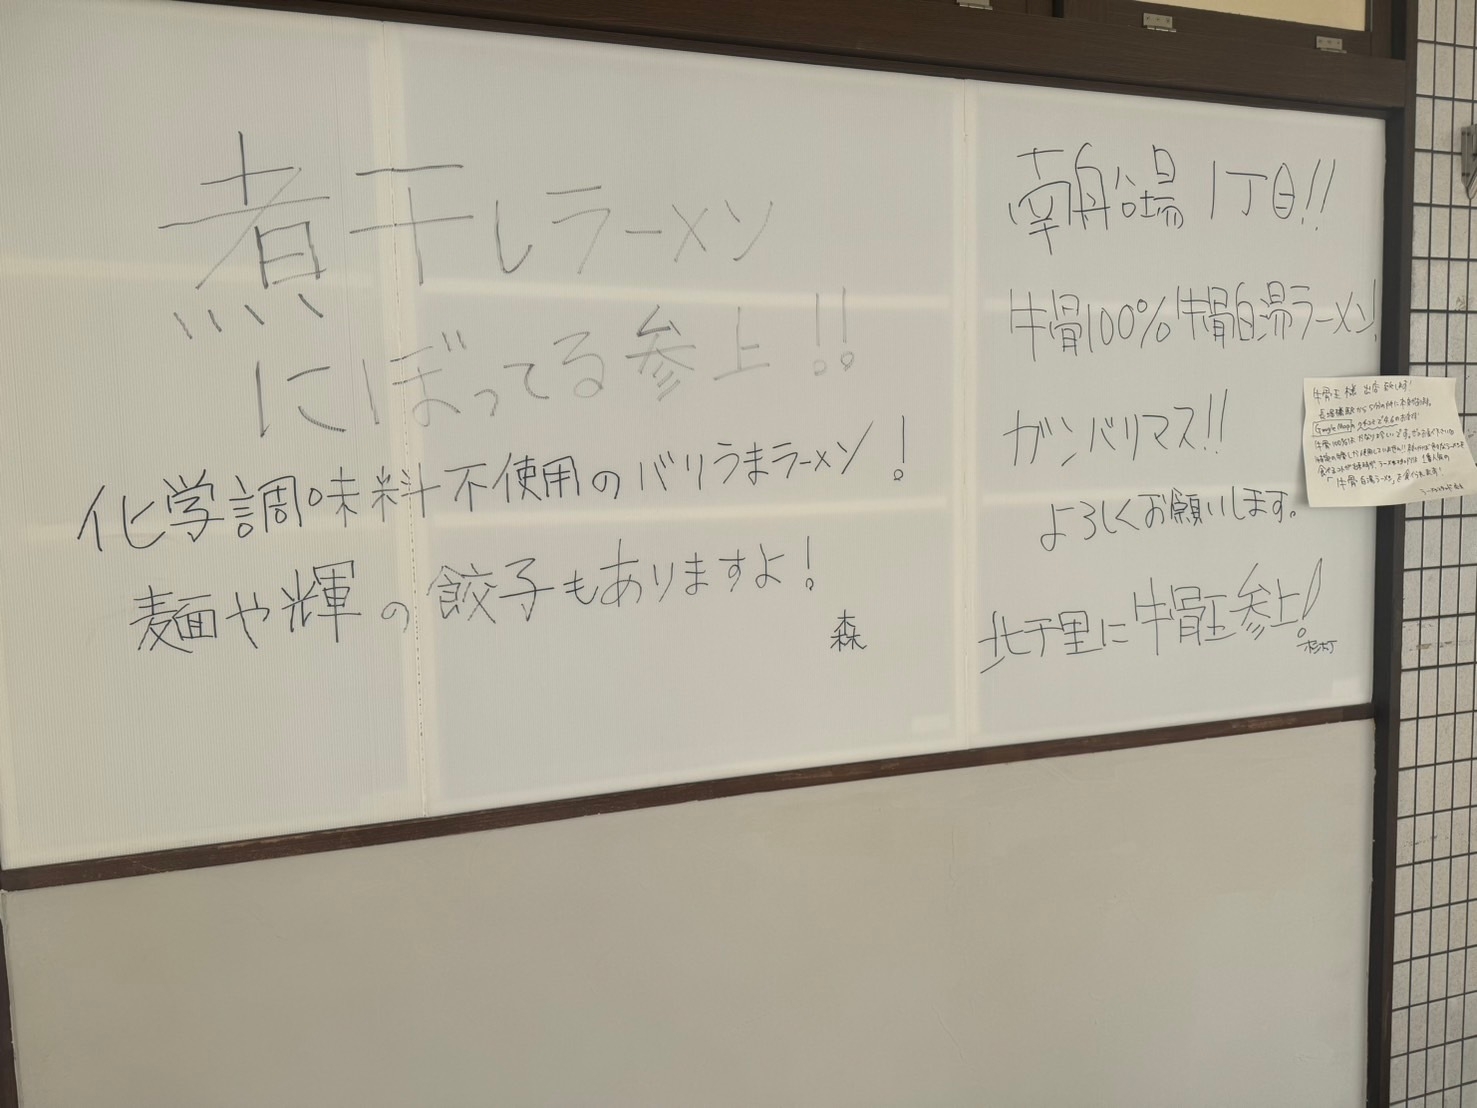 煮干しラーメン
にぼってる参上!!
化学調味料不使用のバリうまラーメン!
麺や輝の餃子もありますよ!
森
南船場 1丁目!!
牛骨100%牛骨白湯ラーメン!
ガンバリマス!!
よろしくお願いします。
北千里に牛骨王参上!
牛骨王様 出店
長堀橋駅から5分の所に本店
Google Map
牛骨100%
食べ
「牛骨白湯ラーメン」